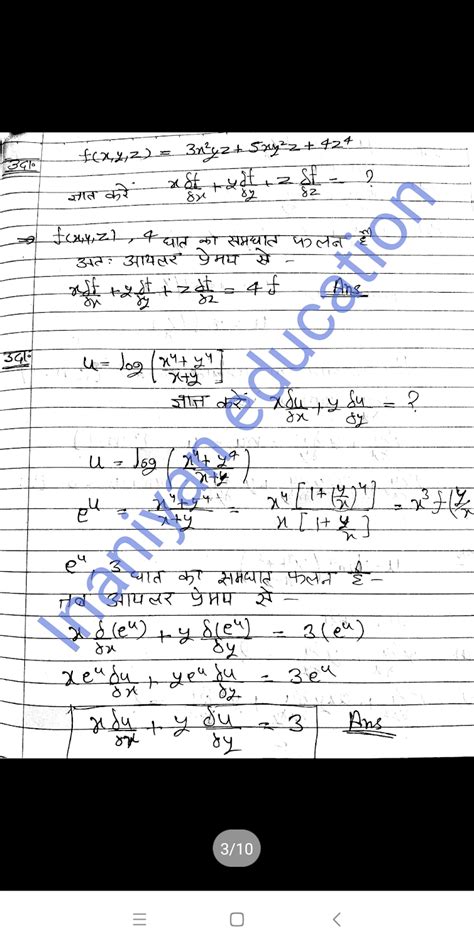 उदा॰ f(x,y,z) = 3x²yz + 5xy²z + 4z⁴
ज्ञात करें x ∂f/∂x + y ∂f/∂y + z ∂f/∂z = ?
⇒ f(x,y,z), 4 घात का समघात फलन है
अतः आयलर प्रेमय से –
x ∂f/∂x + y ∂f/∂y + z ∂f/∂z = 4f Ans
उदा॰ u = log [x⁴ + y⁴ / x+y]
ज्ञात करें x ∂u/∂x + y ∂u/∂y = ?
u = log (x⁴ + y⁴ / x+y)
eᵘ = x⁴ + y⁴ / x+y = x⁴[1 + (y/x)⁴] / x[1 + y/x] = x³ f(y/x
eᵘ, 3 घात का समघात फलन है –
तब आयलर प्रेमय से –
x ∂(eᵘ)/∂x + y ∂(eᵘ)/∂y = 3(eᵘ)
xeᵘ ∂u/∂x + yeᵘ ∂u/∂y = 3eᵘ
x ∂u/∂x + y ∂u/∂y = 3 Ans
Imaniyan education
3/10